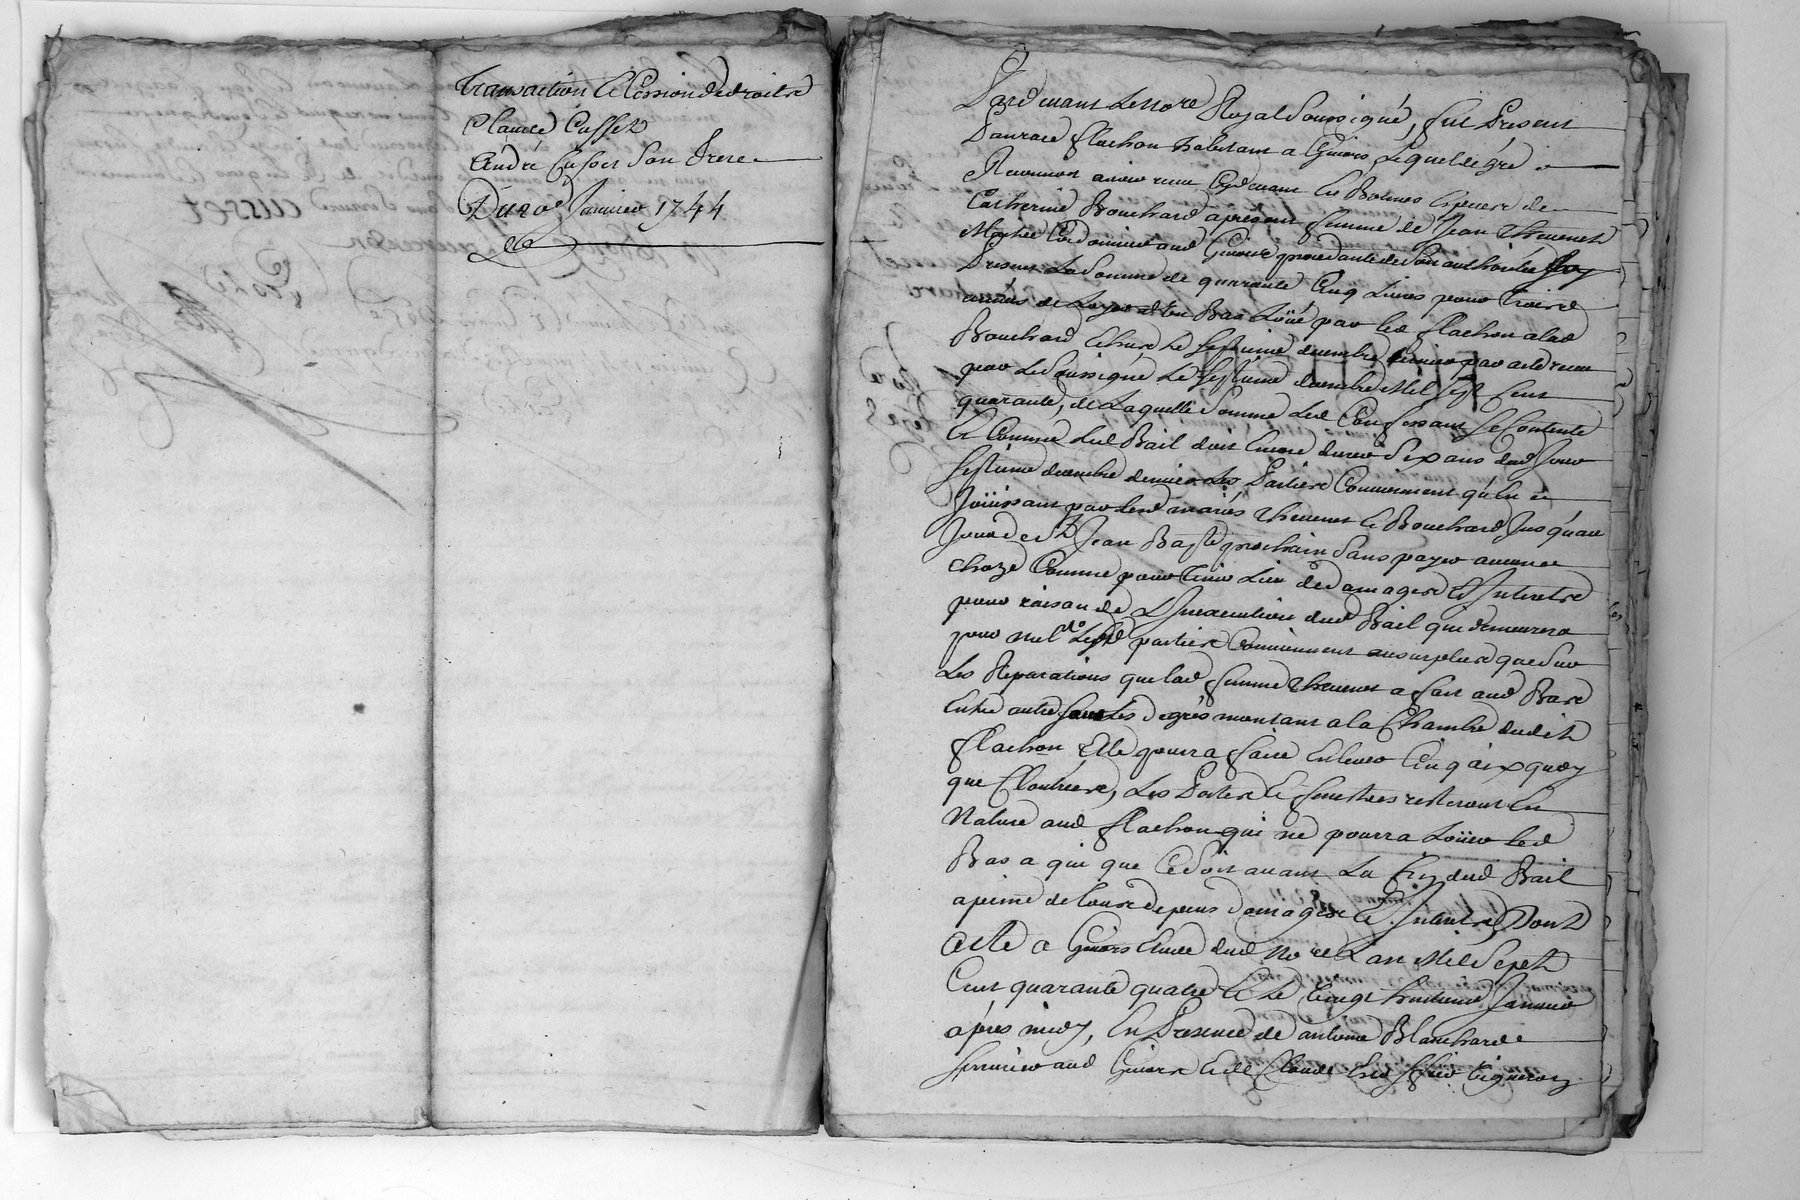 Transaction Et Cession de droits
Claude Cusset
André Cusset Son frere
Du 20e Janvier 1744
Pardevant Le Nore Royal Soussigné, fut Present
flachon habitant a Givors Lequel de gré
Reconnoit avoir receu Cydevant En Bonnes Especes de
Catherine Bouchard apresent femme de Jean Thevenet
Maitre Cordonnier aud Givors procedante de Son authorité
Presens La Somme de quarante Cinq Livres pour Trois
années de Loyer d'un Bas Loüé par led flachon a lad
Bouchard Echues Le septieme decembre dernier par acte receu
par Le Soussigné Le Septieme decembre Mil Sept Cent
quarante, de Laquelle Somme Led Confessant Se Contente
Et Comme Led Bail doit Encore durer Six ans dud Jour
Septieme decembre dernier Les Parties Conviennent qu'En
Joüissant par lesd mariés Thevenet Et Bouchard Jusqu'au
Jour de St Jean Bapte prochain Sans payer aucune
choze Comme pour Tenir Lieu de domages Et Interets
pour raison de L'Inexecution dud Bail qui demeurera
pour nul Lesd parties Conviennent au surplus que Sur
Les Reparations que lad femme Thevenet a fait aud Bas
Entre autre Sur Les degrés montant a la Chambre dudit
flachon Elle pourra faire Enlever Cinq aix quoy
que Cloutées, Les Portes Et fenestres resteront En
Nature aud flachon qui ne pourra Loüer led
Bas a qui que Ce Soit avant La fin dud Bail
a peine de Tous depens domages Et Interets, Dont
Acte a Givors Etude dud Nore L'an Mil Sept
Cent quarante quatre Et Le Vingt huitieme Janvier
apres midy, En Presence de antoine Blanchard
Serrurier aud Givors Et de Claude Vigneron